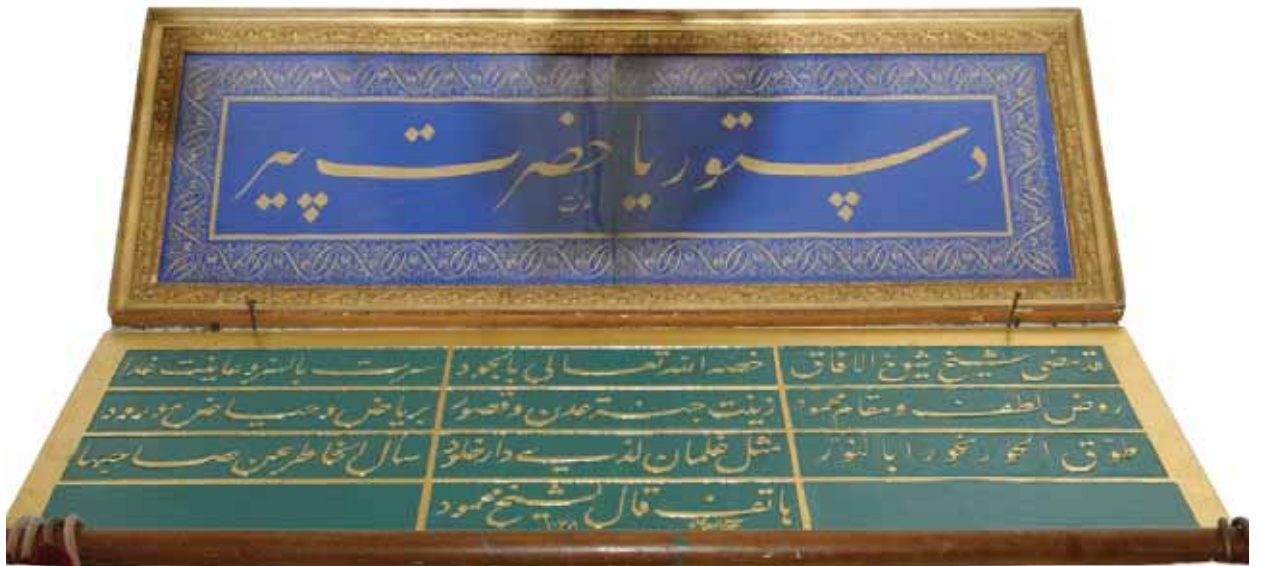 دستور يا حضرت پير
قد مضى شيخ شيوخ الافاق خصه الله تعالى بالجود سرت بالسر و عاينت غدا
روض لطف و مقام محمود زينت جنة عدن و قصور برياض و حياض و ورود
طوق الحور نحورا بالنور مثل غلمان لدى دار خلود سأل الخاطر عن صاحبها
هاتف قال لشيخ محمود
١٠٣٨